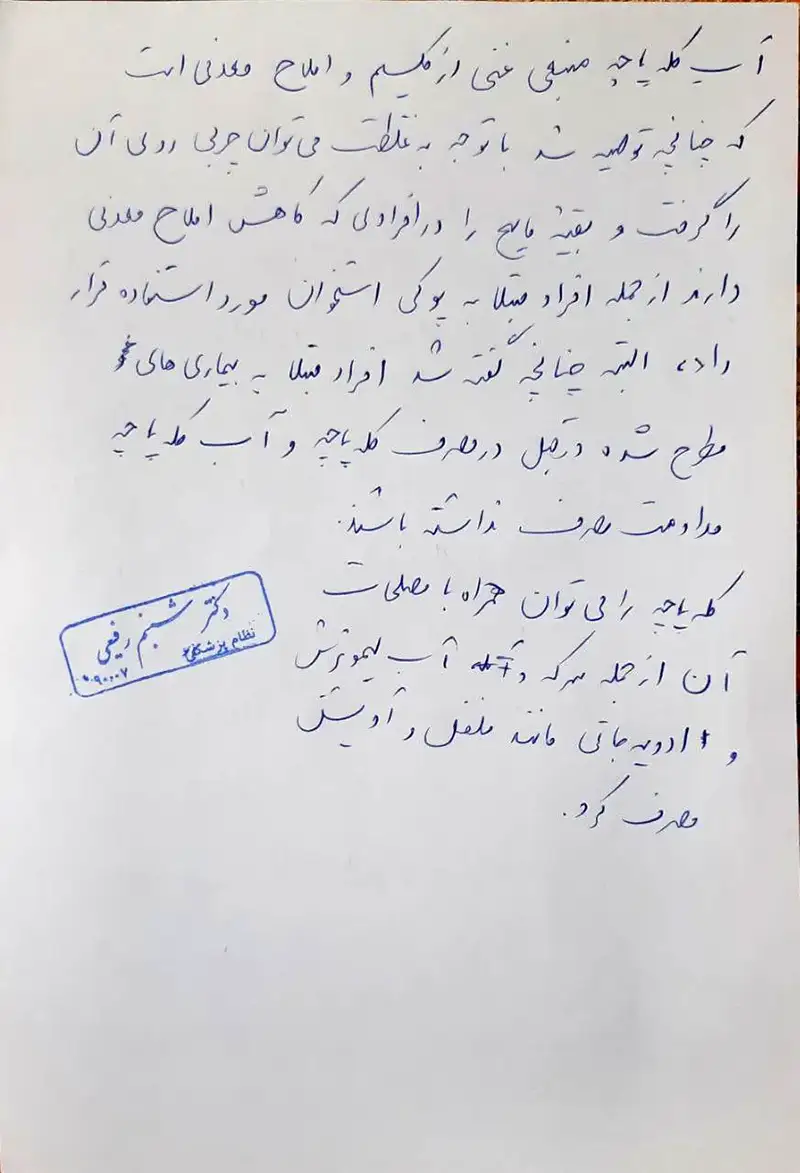 آب کله پاچه منبعی غنی از کلسیم و املاح معدنی است
که چنانچه توصیه شد با توجه به غلظت می توان چربی روی آن
را گرفت و بقیه مایع را در افرادی که کاهش املاح معدنی
دارند از جمله افراد مبتلا به پوکی استخوان مورد استفاده قرار
داد، البته چنانچه گفته شد افراد مبتلا به بیماری های
مطرح شده در قبل در مصرف کله پاچه و آب کله پاچه
مداومت مصرف نداشته باشند.
کله پاچه را می توان همراه با مصلحات
آن از جمله سرکه و آب لیموترش
و ادویه جاتی مانند فلفل و آویشن
مصرف کرد.
دکتر شبنم رفیعی
نظام پزشکی